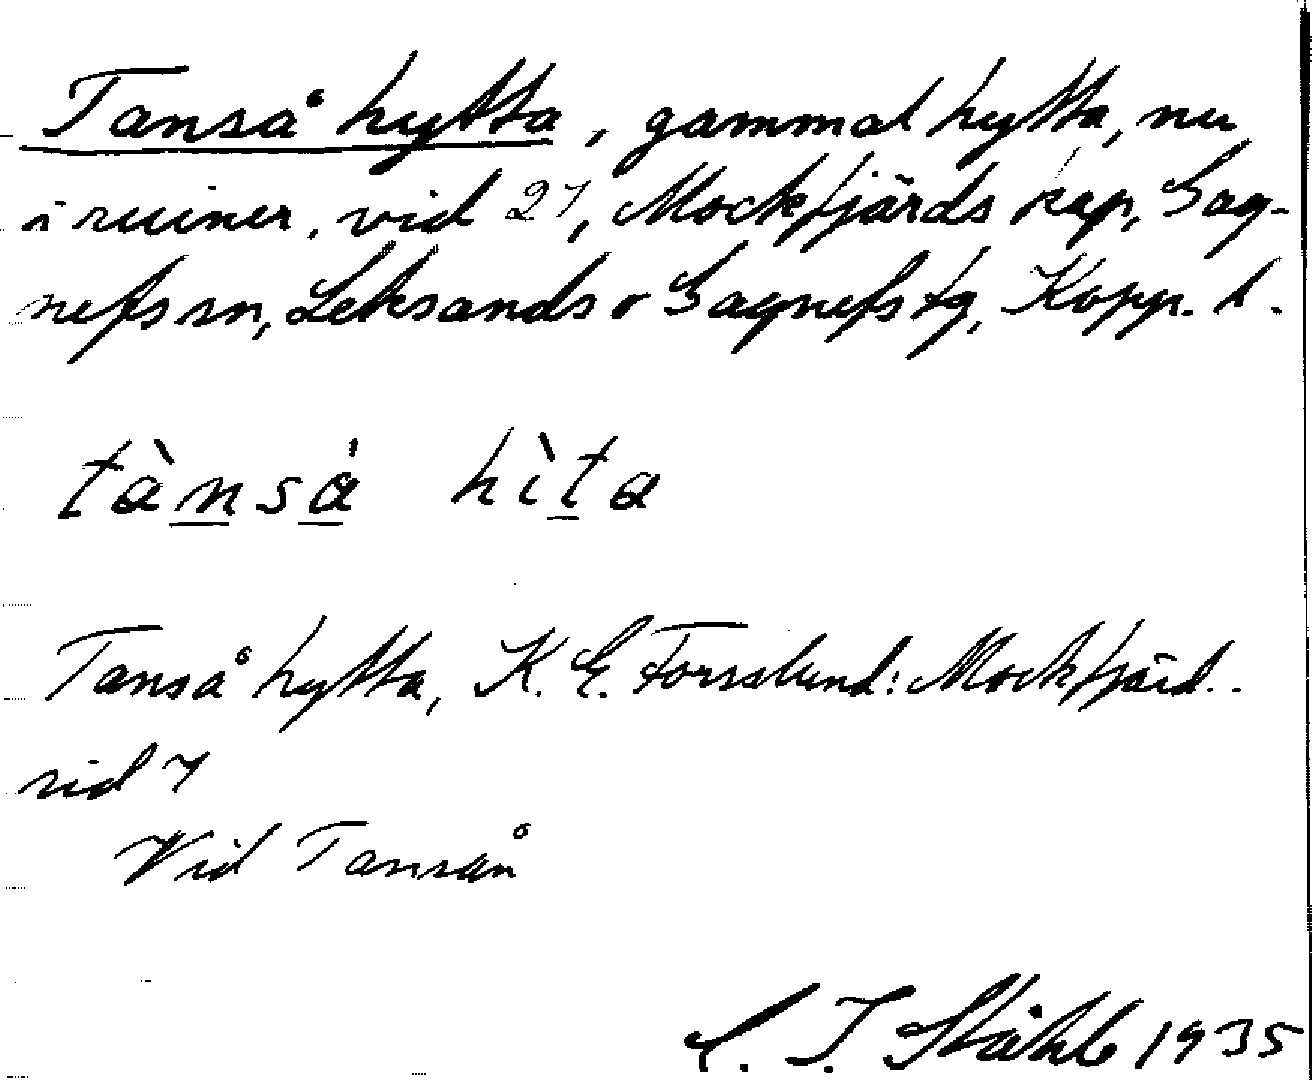 Tanså hytta, gammal hytta, nu
i ruiner, vid 27, Mockfjärds kap, Gag-
nefs sn, Leksands o Gagnefs tg, Kopp. l.
tànsȧ hìta
Tanså hytta, K. E. Forsslund: Mockfjärd..
sid 7
Vid Tansån
C. I. Ståhle 1935